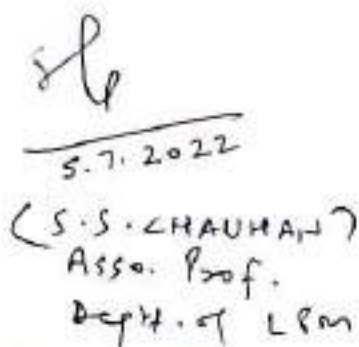 5.7.2022
(S.S. CHAUHAN)
Asso. Prof.
Deptt. of LPM